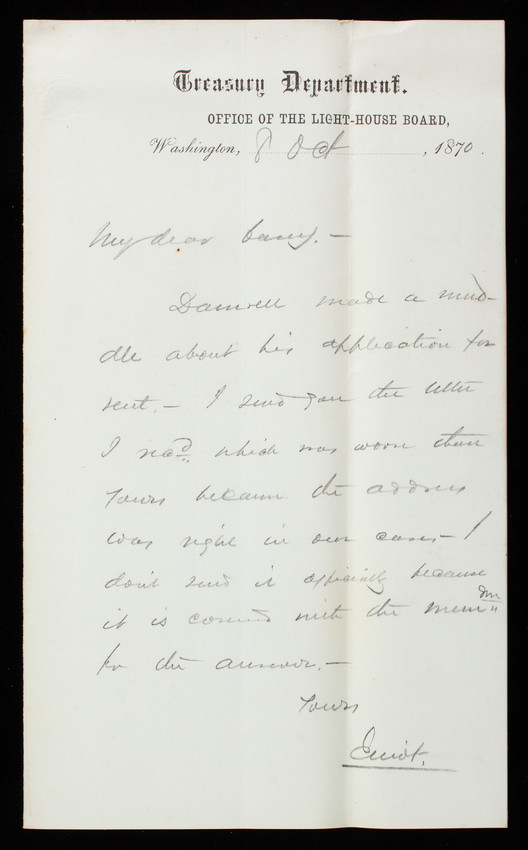 Treasury Department.
OFFICE OF THE LIGHT-HOUSE BOARD,
Washington, 8 Oct, 1870.
My dear Casey. —
Damrell made a mud-
dle about his application for
rent. — I send you the letter
I rec'd. which was worse than
Yours because the address
was right in our case — I
don't send it officially because
it is covered with the memdm
for the answer. —
Yours
Elliot.